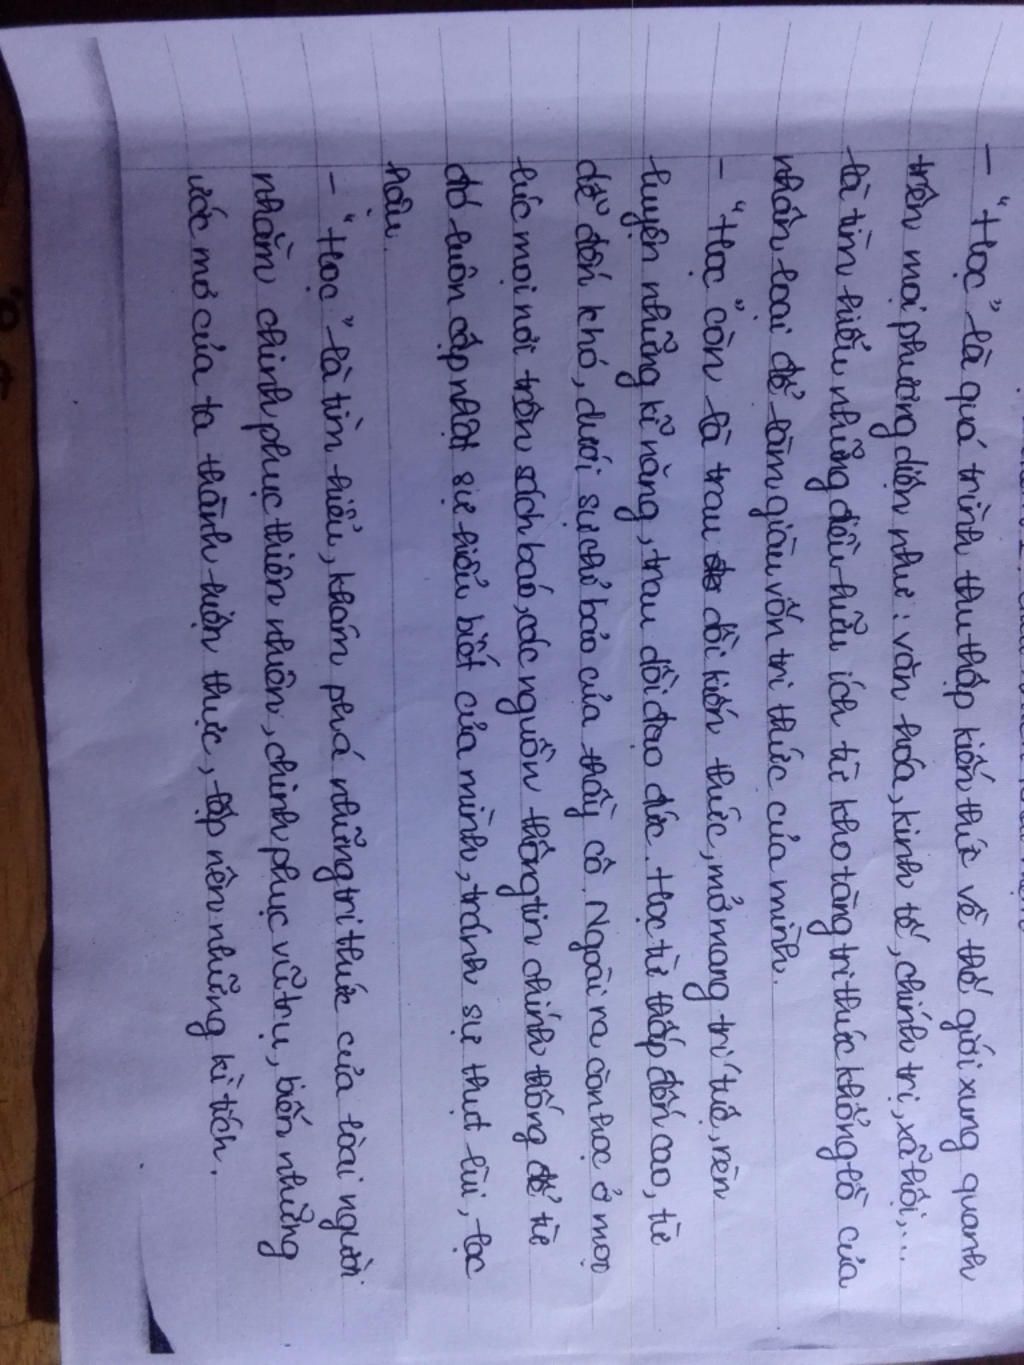 - "Học" là quá trình thu thập kiến thức về thế giới xung quanh
trên mọi phương diện như: văn hóa, kinh tế, chính trị, xã hội,...
là tìm hiểu những điều hữu ích từ kho tàng tri thức khổng lồ của
nhân loại để làm giàu vốn tri thức của mình.
- "Học" còn là trau dồi kiến thức, mở mang trí tuệ, rèn
luyện những kĩ năng, trau dồi đạo đức. Học từ thấp đến cao, từ
dễ đến khó, dưới sự chỉ bảo của thầy cô. Ngoài ra còn học ở mọi
lúc mọi nơi trên sách báo, các nguồn thông tin chính thống để từ
đó luôn cập nhật sự hiểu biết của mình, tránh sự thụt lùi, lạc
hậu.
- "Học" là tìm hiểu, khám phá những tri thức của loài người
nhằm chinh phục thiên nhiên, chinh phục vũ trụ, biến những
ước mơ của ta thành hiện thực, lập nên những kì tích.